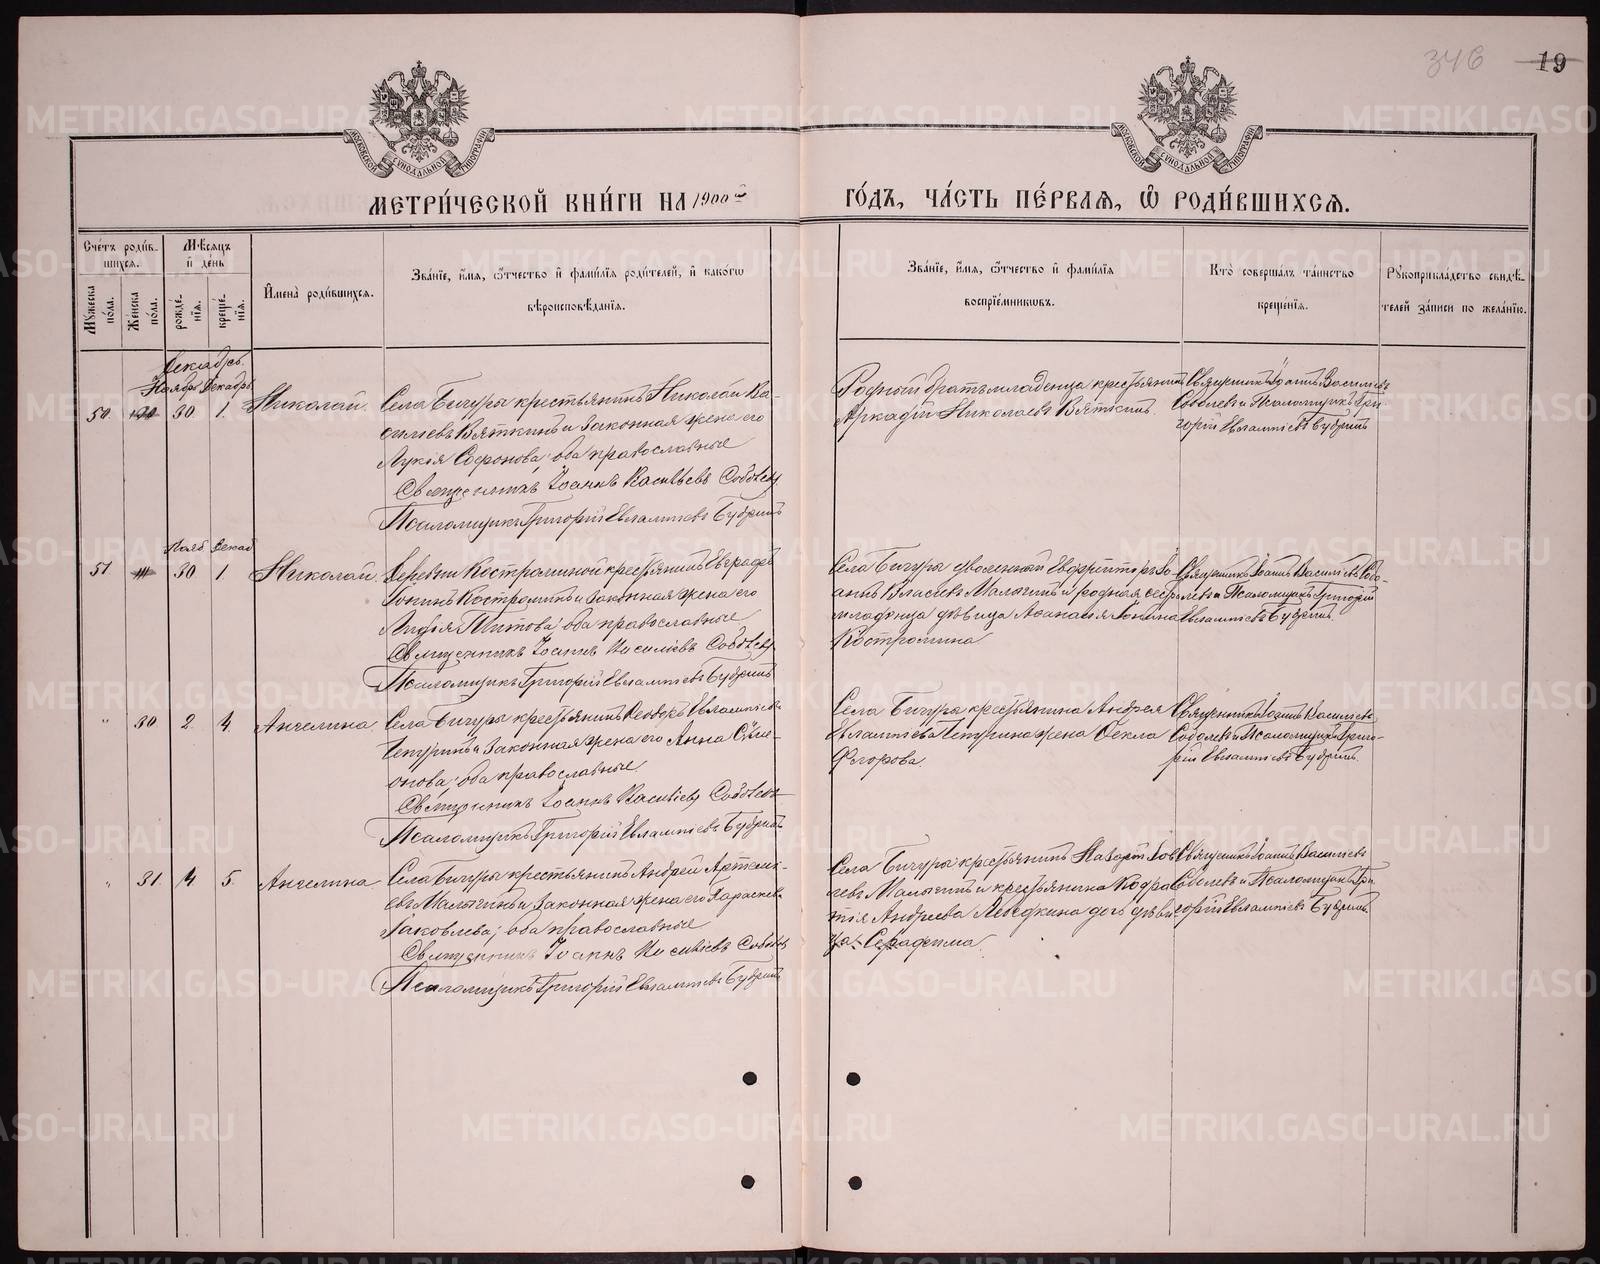 346
19
МЕТРИ́ЧЕСКОЙ КНИ́ГИ НА 1900й
ГО́ДЪ, ЧА́СТЬ ПЕ́РВАѦ, Ѡ҆ РОДИ́ВШИХСѦ.
Сче́тъ роди́в-
шихсѧ.
Мѣ́сѧцъ
и҆ де́нь
Мꙋ́жеска
по́ла.
Же́нска
по́ла.
рожде́-
нїѧ.
креще́-
нїѧ.
И҆мена̀ роди́вшихсѧ.
Зва́нїе, и҆́мѧ, ѻ҆́тчество и҆ фами́лїѧ роди́телей, и҆ како́гѡ
вѣроисповѣ́данїѧ.
Зва́нїе, и҆́мѧ, ѻ҆́тчество и҆ фами́лїѧ
воспрїе́мникѡвъ.
Кто̀ соверша́лъ та́инство
креще́нїѧ.
Рꙋкоприкла́дство свидѣ́-
телей за́писи по жела́нїю.
Декабрь.
Ноябр. Декабр.
50. 30 1. Николай.
Села Бичуры крестьянинъ Николай Ва-
сильевъ Вяткинъ и законная жена его
Лукія Софронова; оба православные
Священникъ Іоаннъ Васильевъ Соболевъ
Псаломщикъ Григорій Евлампіевъ Бубринъ
Родный братъ младенца крестьянинъ
Аркадій Николаевъ Вяткинъ.
Священникъ Іоаннъ Васильевъ
Соболевъ и Псаломщикъ Гри-
горій Евлампіевъ Бубринъ
Нояб Декаб
51. 30 1. Николай.
Деревни Костроминой крестьянинъ Евграфъ
Іонинъ Костроминъ и законная жена его
Лидія Титова; оба православные
Священникъ Іоаннъ Васильевъ Соболевъ
Псаломщикъ Григорій Евлампіевъ Бубринъ
Села Бичуры уволенный Ефрейторъ Іо-
аннъ Власіевъ Малыгинъ и родная сестра
младенца дѣвица Аѳанасія Іонина
Костромина
Священникъ Іоаннъ Васильевъ Собо-
левъ и Псаломщикъ Григорій
Евлампіевъ Бубринъ.
" 30 2. 4. Ангелина.
Села Бичуры крестьянинъ Ѳеодоръ Евлампіевъ
Чепуринъ законная жена его Анна Симе-
онова; оба православные.
Священникъ Іоаннъ Васильевъ Соболевъ
Псаломщикъ Григорій Евлампіевъ Бубринъ
Села Бичуры крестьянина Андрея
Евлампіева Чепурина жена Ѳекла
Ѳегорова.
Священникъ Іоаннъ Васильевъ
Соболевъ и Псаломщикъ Григо-
рій Евлампіевъ Бубринъ.
" 31. 4. 5. Ангелина
Села Бичуры крестьянинъ Андрей Артемі-
евъ Малыгинъ и законная жена его Параскева
Іаковлева; оба православные
Священникъ Іоаннъ Васильевъ Соболевъ
Псаломщикъ Григорій Евлампіевъ Бубринъ
Села Бичуры крестьянинъ Назарій Іов-
левъ Малыгинъ и крестьянина Кодра-
тія Андреева Лебедкина дочь дѣви-
ца: Серафима
Священникъ Іоаннъ Васильевъ
Соболевъ и Псаломщикъ Гри-
горій Евлампіевъ Бубринъ.
METRIKI.GASO-URAL.RU